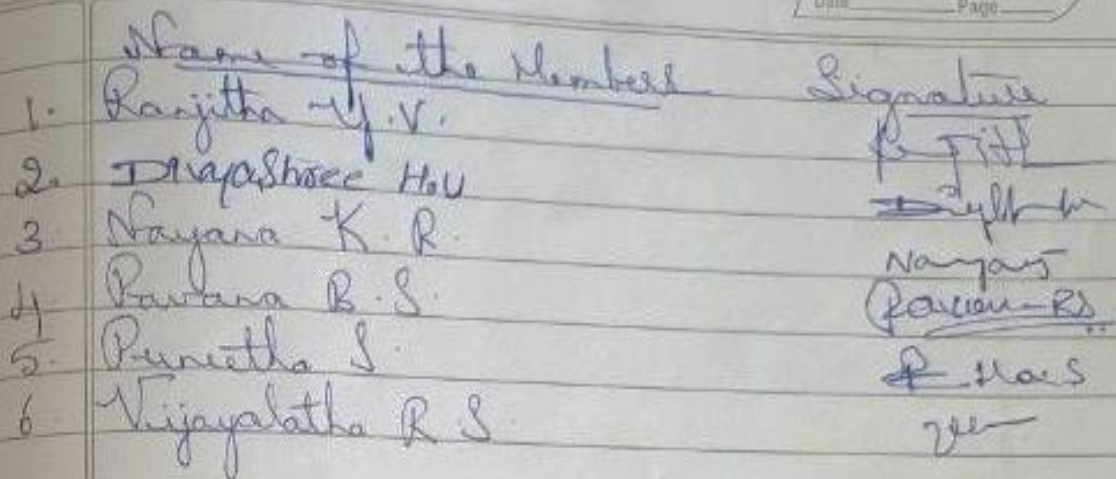 Date Page
Name of the Members Signature
1. Ranjitha Y.V.
2. Divyashree H.U
3. Nayana K.R.
4. Pavana B.S.
5. Puneetha S.
6. Vijayalatha R S.